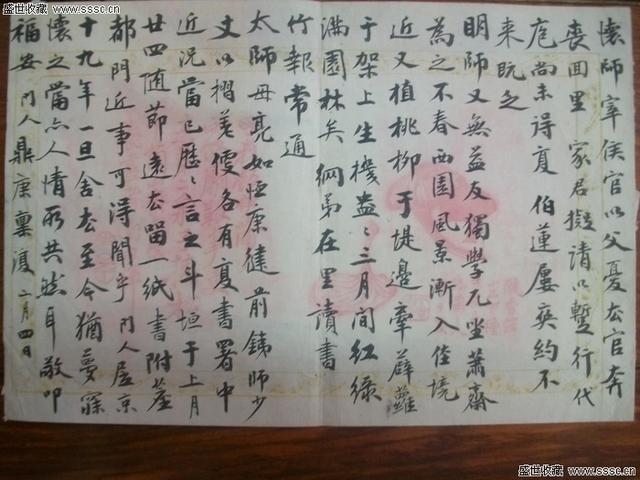 盛世收藏 www.sssc.cn
盛世收藏 www.sssc.cn
懷師宰侯官以父憂去官奔
喪回里 家君擬請以暫行代
庖尚未得夏 伯蓮屢爽約不
來既乏
明師又無益友獨學兀坐蕭齋
為之不春西園風景漸入佳境
近又植桃柳于堤邊牽薜蘿
于架上生機盎〻三月間紅綠
滿園林矣 綱弟在里讀書
竹報常通
太師母亮如恒康健前銕師少
丈以摺差便各有復書署中
近況當已歷〻言之斗垣于上月
廿四隨節遠去留一紙書附
都門近事可得聞乎 門人居京
十九年一旦舍去至今猶夢寐
懷之當亦人情所共然耳敬叩
福安 門人鼎康稟復 二月四日
盛世收藏 www.sssc.cn
盛世收藏 www.sssc.cn